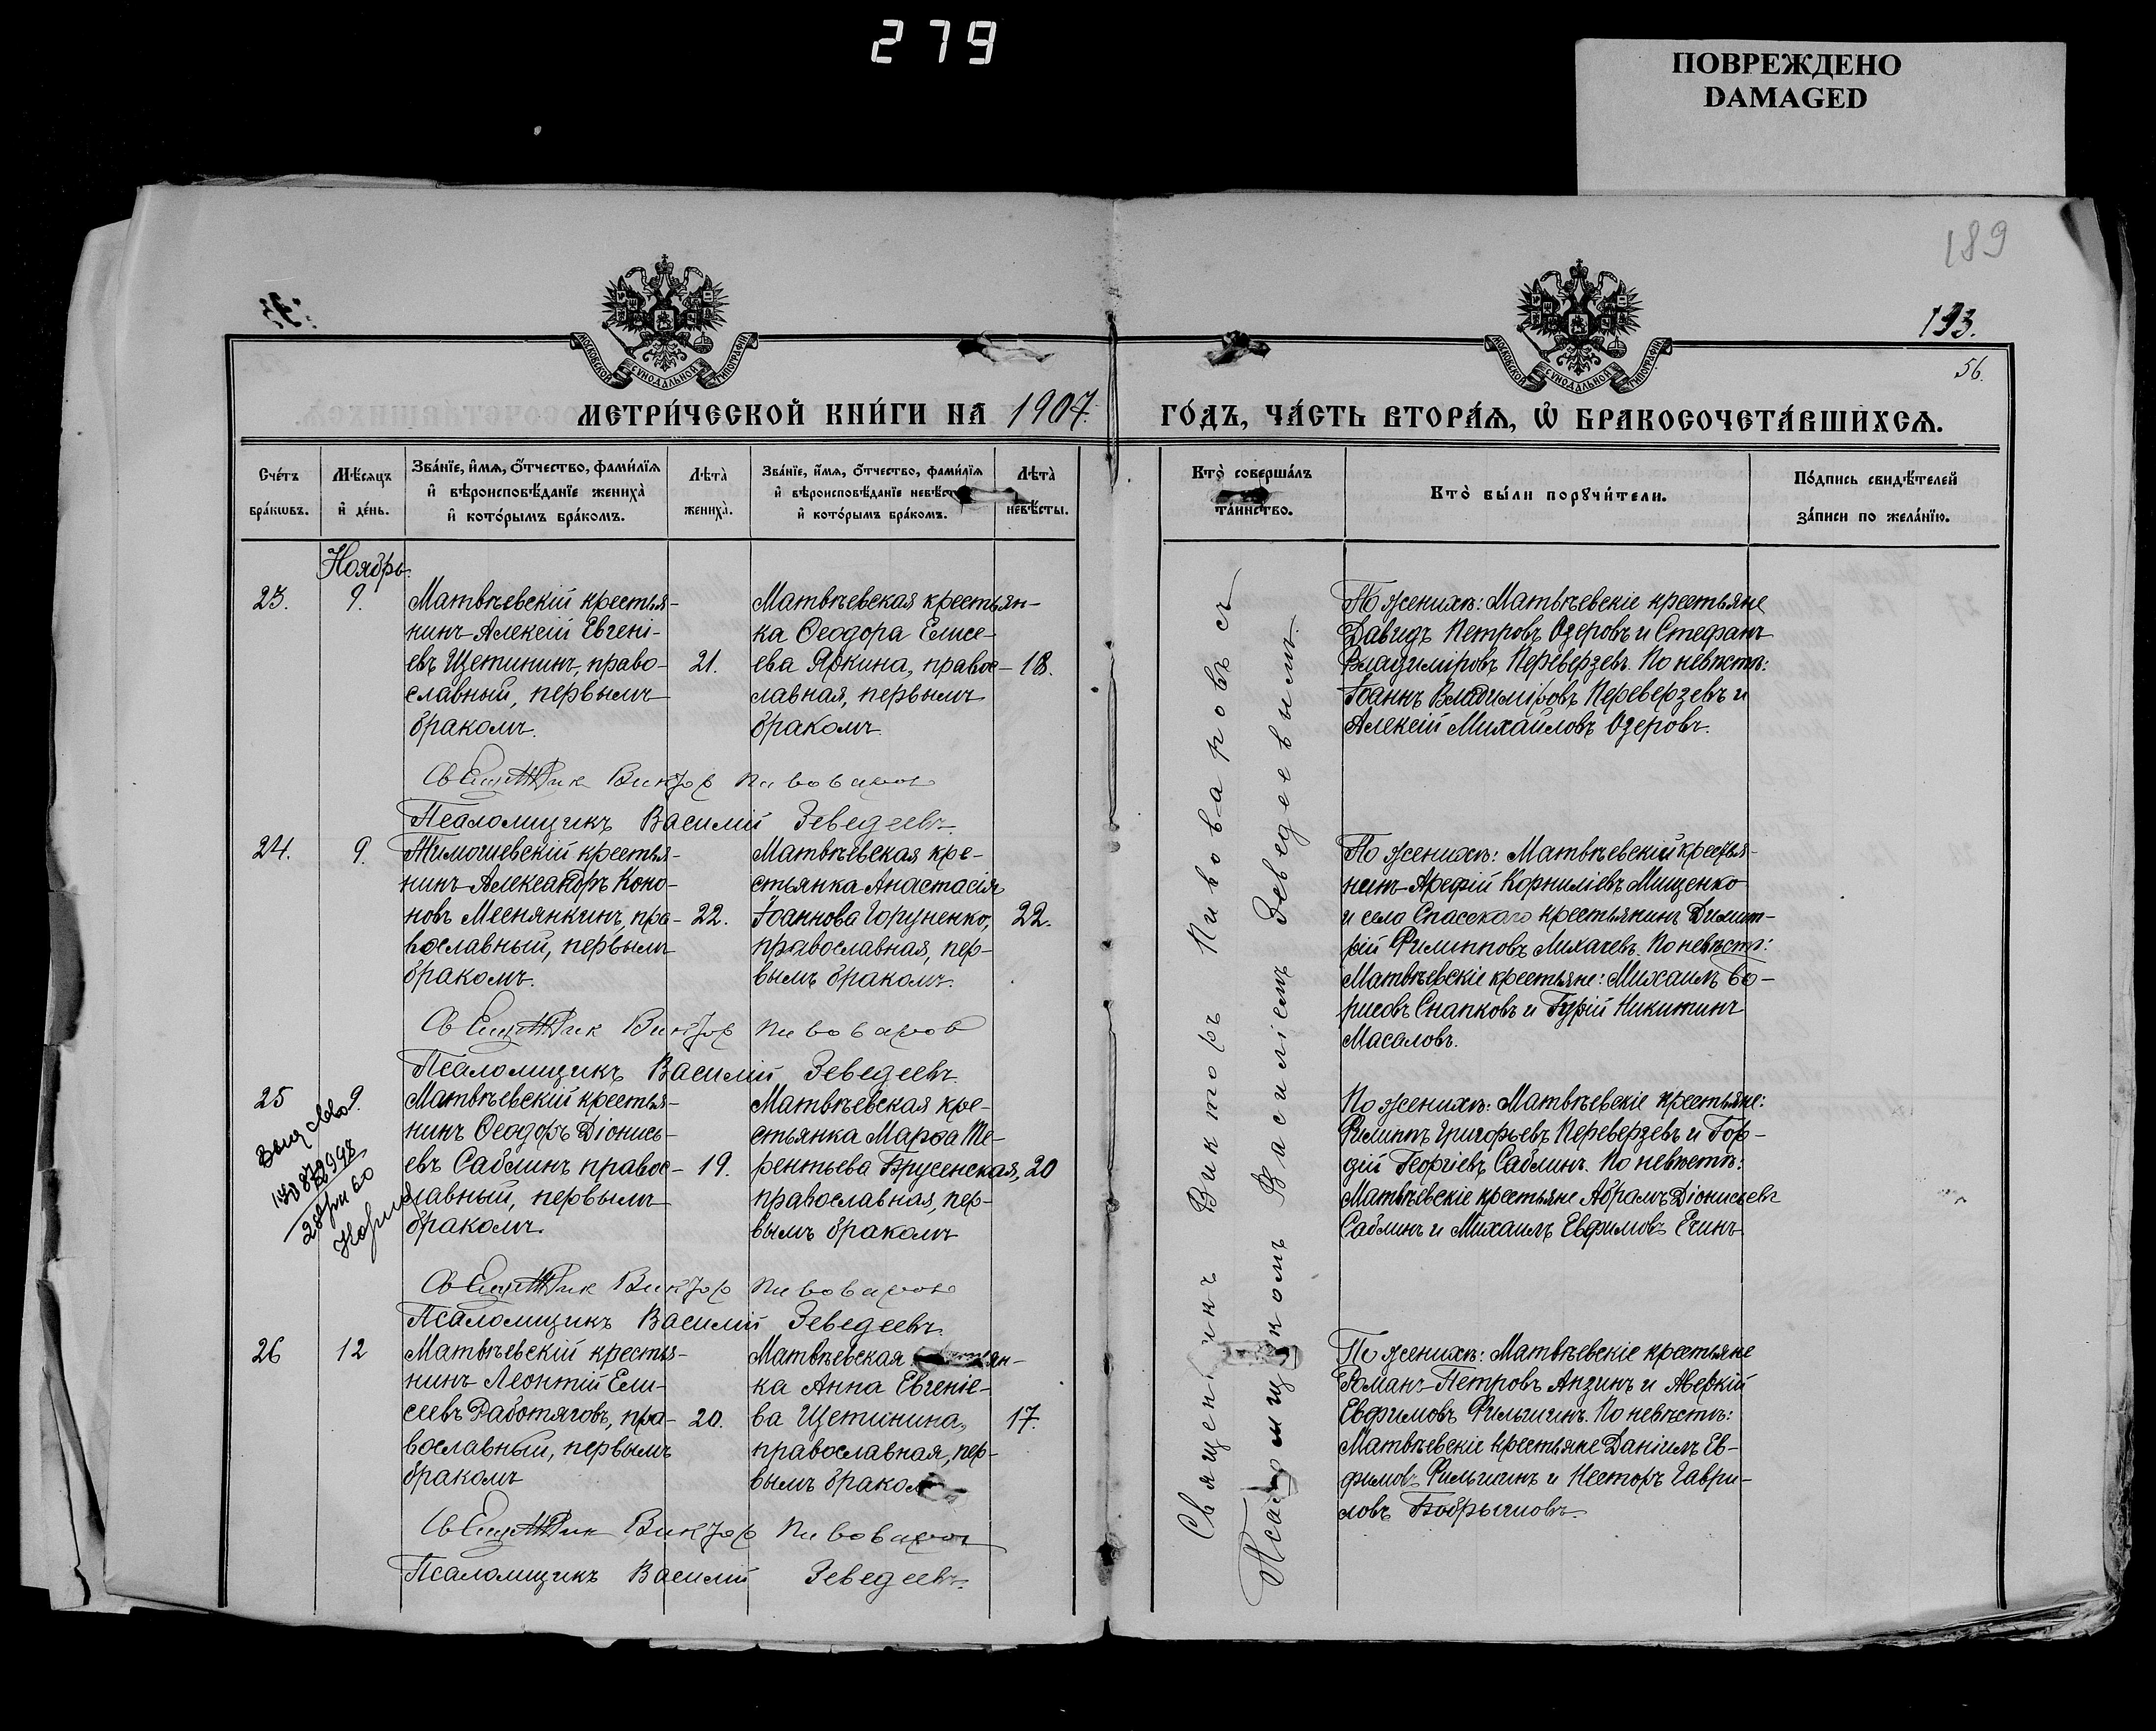 279
ПОВРЕЖДЕНО
DAMAGED
189
193.
56.
МОСКОВСКОЙ СѴНОДАЛЬНОЙ ТИПОГРАФІИ
МОСКОВСКОЙ СѴНОДАЛЬНОЙ ТИПОГРАФІИ
МЕТРИ́ЧЕСКОЙ КНИ́ГИ НА 1907.
ГО́ДЪ, ЧА́СТЬ ВТОРА́Ѧ, Ѡ҆ БРАКОСОЧЕТА́ВШИХСѦ.
Сче́тъ
бра́кѡвъ.
Мѣ́сѧцъ
и҆ де́нь.
Зва́нїе, и҆́мѧ, ѻ҆́тчество, фами́лїѧ
и҆ вѣроисповѣ́данїе жениха̀
и҆ кото́рымъ бра́комъ.
Лѣта̀
жениха̀.
Зва́нїе, и҆́мѧ, ѻ҆́тчество, фами́лїѧ
и҆ вѣроисповѣ́данїе невѣ́ст
и҆ кото́рымъ бра́комъ.
Лѣта̀
невѣ́сты.
Кто̀ соверша́лъ
та́инство.
Кто̀ бы́ли порꙋчи́тели.
По́дпись свидѣ́телей
за́писи по жела́нїю.
Ноябрь.
23.
9.
Матвѣевскій крестья-
нинъ Алексій Евгені-
евъ Щетининъ, право-
славный, первымъ
бракомъ.
21.
Матвѣевская крестьян-
ка Ѳеодора Елисе-
ева Яркина, правос-
лавная, первымъ
бракомъ.
18.
Священникъ Викторъ Пивоваровъ съ
Псаломщикомъ Василіемъ Зеведеевымъ.
По женихѣ: Матвѣевскіе крестьяне
Давидъ Петровъ Озеровъ и Стефанъ
Владиміровъ Переверзевъ. По невѣстѣ:
Іоаннъ Владиміровъ Переверзевъ и
Алексій Михайловъ Озеровъ.
Священник Виктор Пивоваров
Псаломщикъ Василій Зеведеевъ.
24.
9.
Тимошевскій крестья-
нинъ Александръ Коно-
новъ Меснянкинъ, пра-
вославный, первымъ
бракомъ.
22.
Матвѣевская кре-
стьянка Анастасія
Іоаннова Горуненко,
православная, пер-
вымъ бракомъ.
22.
По женихѣ: Матвѣевскій крестья-
нинъ Арефій Корниліевъ Мищенко
и села Спасскаго крестьянинъ Димит-
рій Филипповъ Лихачевъ. По невѣстѣ:
Матвѣевскіе крестьяне: Михаилъ Бо-
рисовъ Снапковъ и Гурій Никитинъ
Масаловъ.
Священник Виктор Пивоваров
Псаломщикъ Василій Зеведеевъ.
25
9.
Матвѣевскій крестья-
нинъ Ѳеодоръ Діонись-
евъ Саблинъ правос-
лавный, первымъ
бракомъ.
19.
Матвѣевская кре-
стьянка Марѳа Те-
рентьева Брусенская,
православная, пер-
вымъ бракомъ
20
По женихѣ: Матвѣевскіе крестьяне:
Филиппъ Григорьевъ Переверзевъ и Гор-
дій Георгіевъ Саблинъ. По невѣстѣ:
Матвѣевскіе крестьяне Абрамъ Діонисьевъ
Саблинъ и Михаилъ Евфимовъ Ечинъ.
Священник Виктор Пивоваров
Псаломщикъ Василій Зеведеевъ.
26
12
Матвѣевскій крестья-
нинъ Леонтій Ели-
сеевъ Работяговъ, пра-
вославный, первымъ
бракомъ
20.
Матвѣевская
ка Анна Евгеніе-
ва Щетинина,
православная, пер-
вымъ браком
17.
По женихѣ: Матвѣевскіе крестьяне
Романъ Петровъ Апзинъ и Аверкій
Евфимовъ Фильшинъ. По невѣстѣ:
Матвѣевскіе крестьяне Даніилъ Ев-
фимовъ Фильшинъ и Несторъ Гаври-
ловъ Бобрышовъ.
Священник Виктор Пивоваров
Псаломщикъ Василій Зеведеевъ.